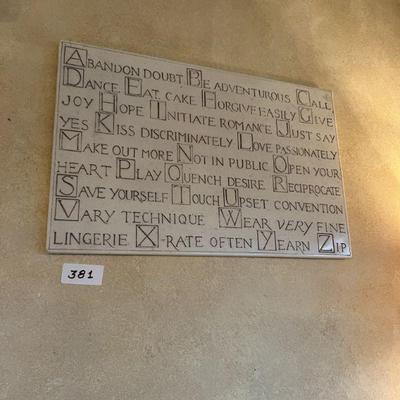 ABANDON DOUBT BE ADVENTUROUS CALL
DANCE EAT CAKE FORGIVE EASILY GIVE
JOY HOPE INITIATE ROMANCE JUST SAY
YES KISS DISCRIMINATELY LOVE PASSIONATELY
MAKE OUT MORE NOT IN PUBLIC OPEN YOUR
HEART PLAY QUENCH DESIRE RECIPROCATE
SAVE YOURSELF TOUCH UPSET CONVENTION
VARY TECHNIQUE WEAR VERY FINE
LINGERIE X-RATE OFTEN YEARN ZIP
381